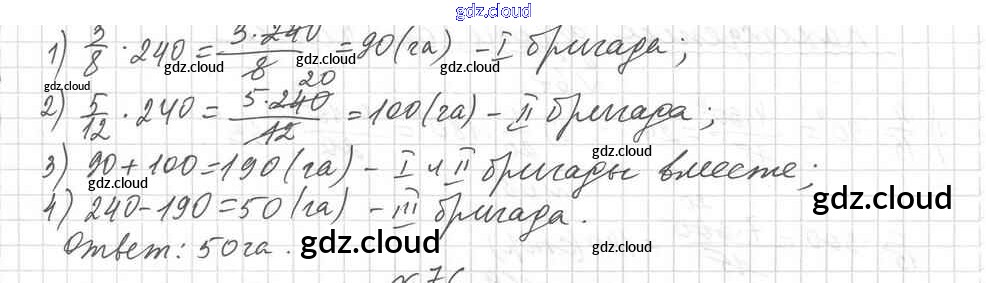 gdz.cloud
1) 3/8 · 240 = 3·240/8 = 90 (га) – I бригада;
gdz.cloud gdz.cloud gdz.cloud
gdz.cloud
2) 5/12 · 240 = 5·240/12 = 100 (га) – II бригада;
20
3) 90 + 100 = 190 (га) – I и II бригады вместе;
gdz.cloud gdz.cloud
4) 240 – 190 = 50 (га) – III бригада.
gdz.cloud gdz.cloud
Ответ: 50 га.
gdz.cloud gdz.cloud